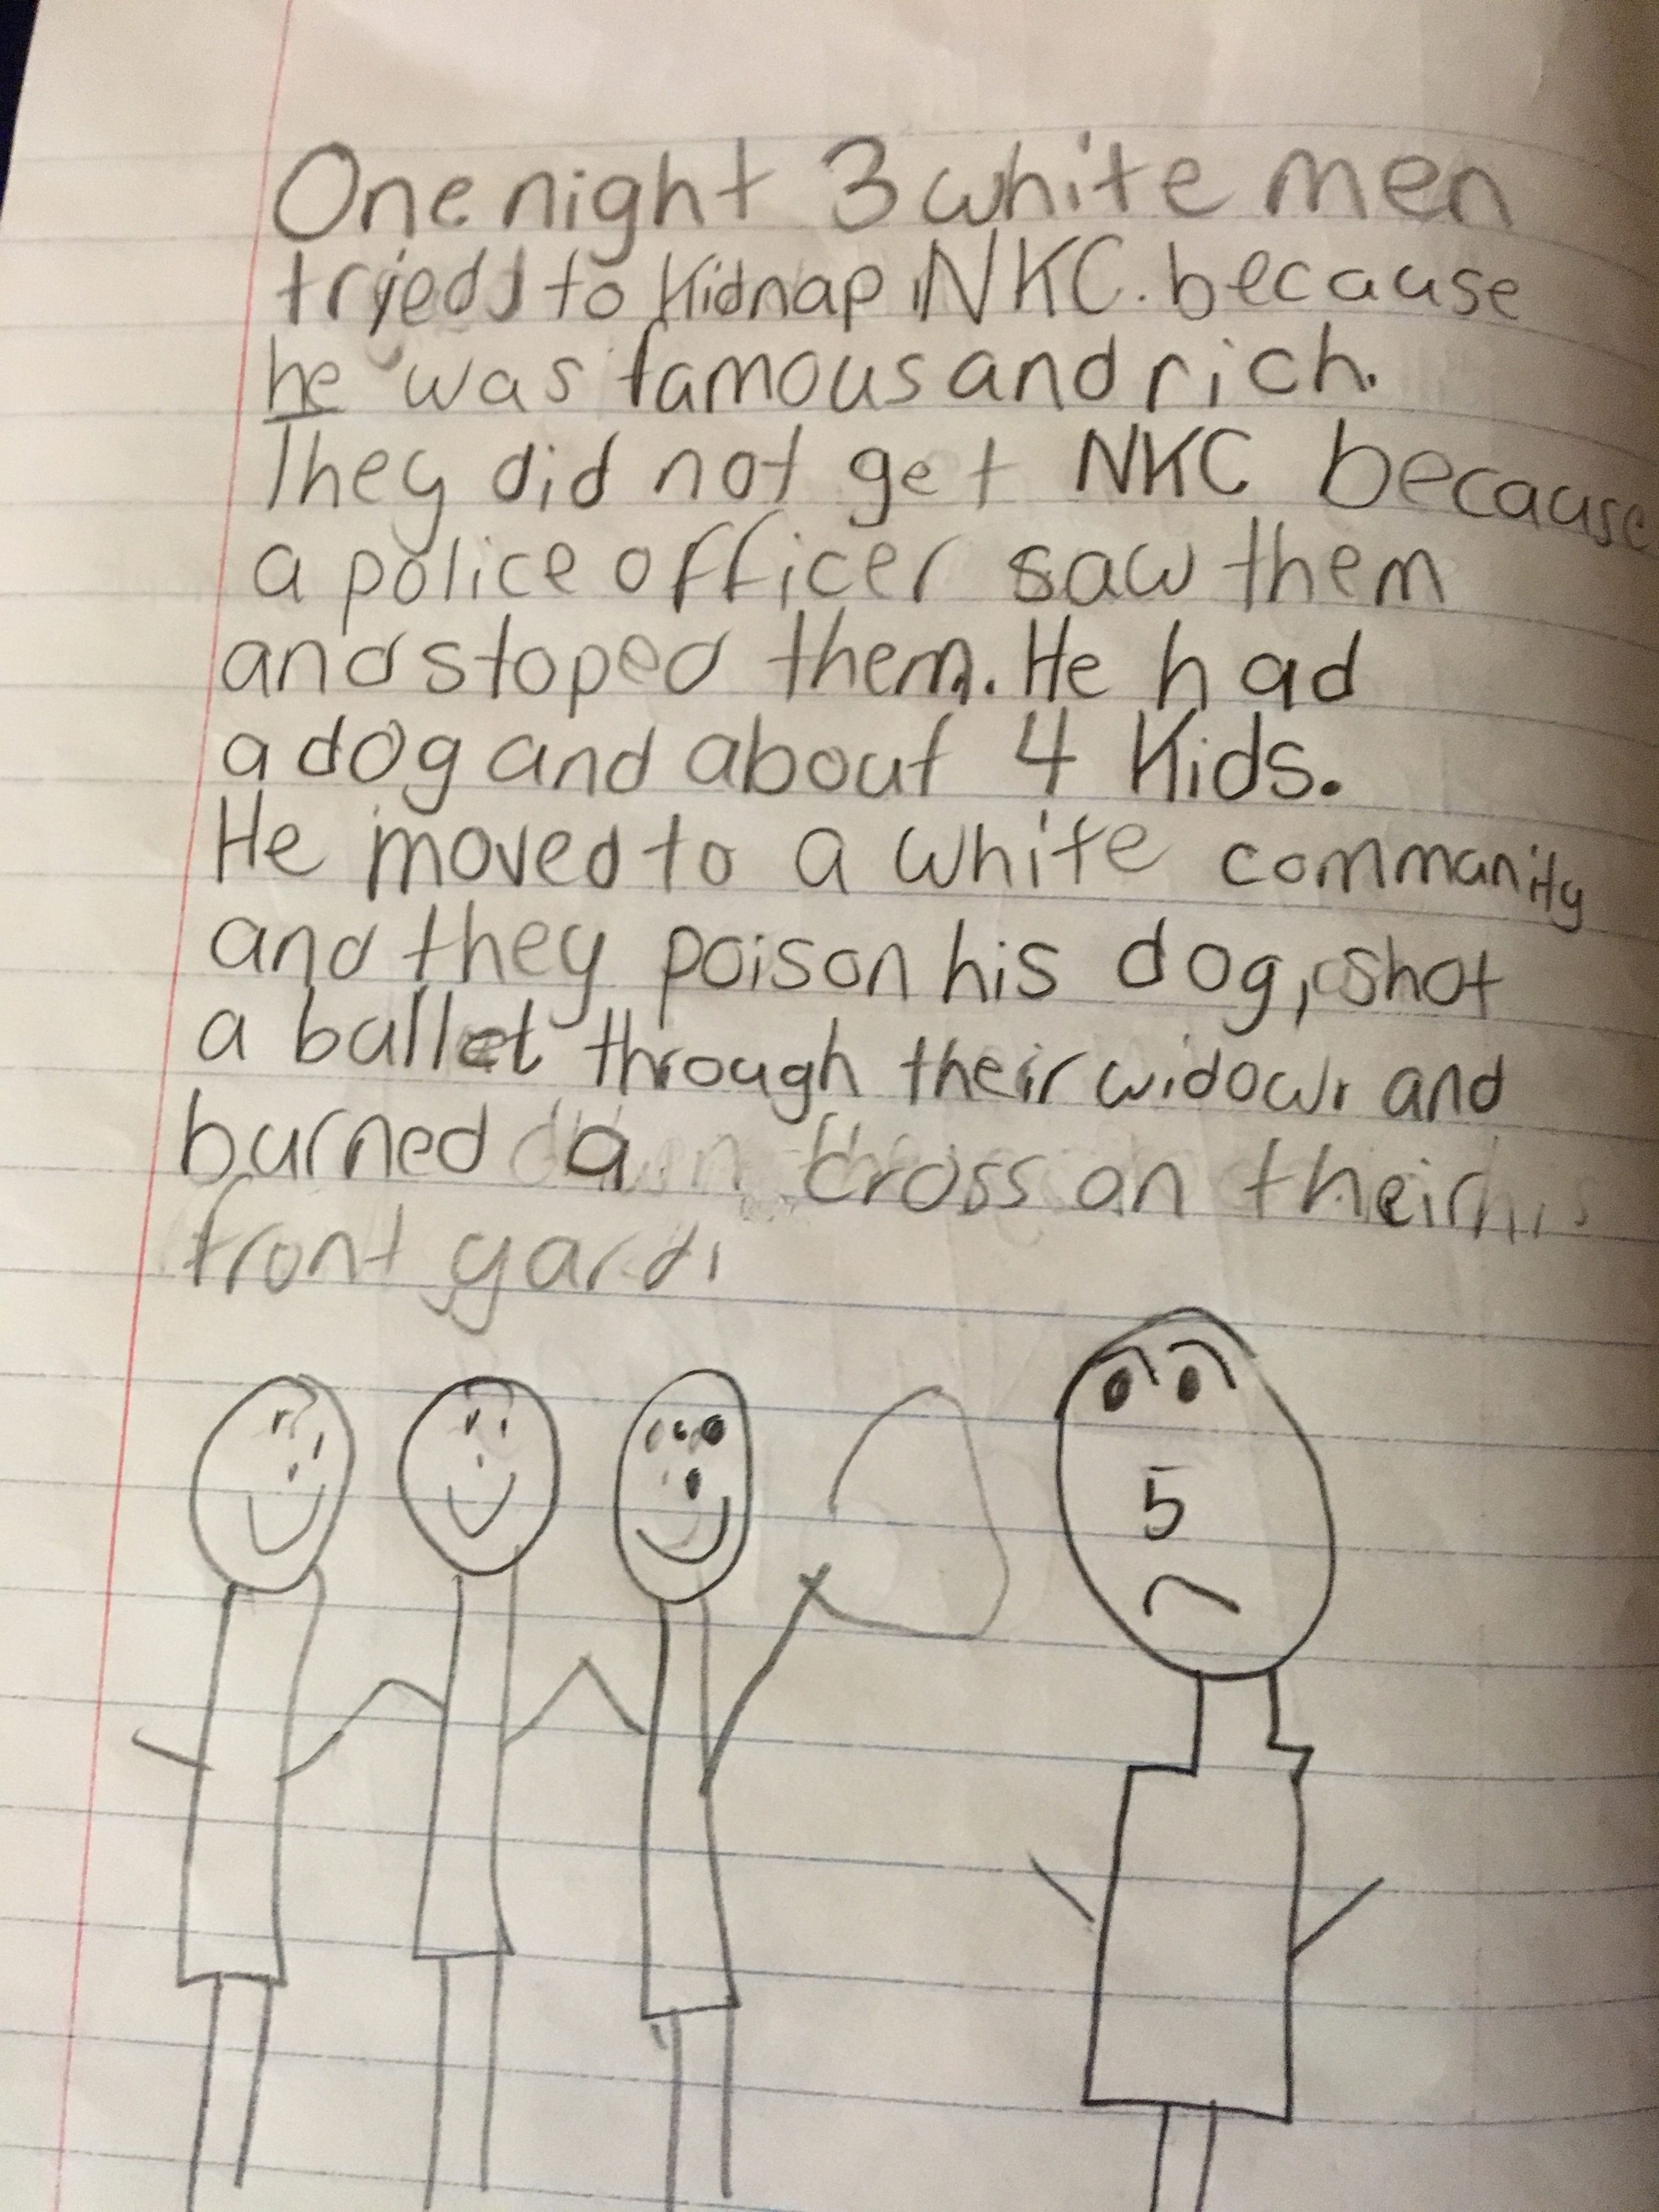 One night 3 white men
tryed to Kidnap NKC. because
he was famous and rich.
They did not get NKC because
a police officer saw them
and stoped them. He had
a dog and about 4 Kids.
He moved to a white commanity
and they poison his dog, shot
a ballet through their widow, and
burned a cross on their
front yard.